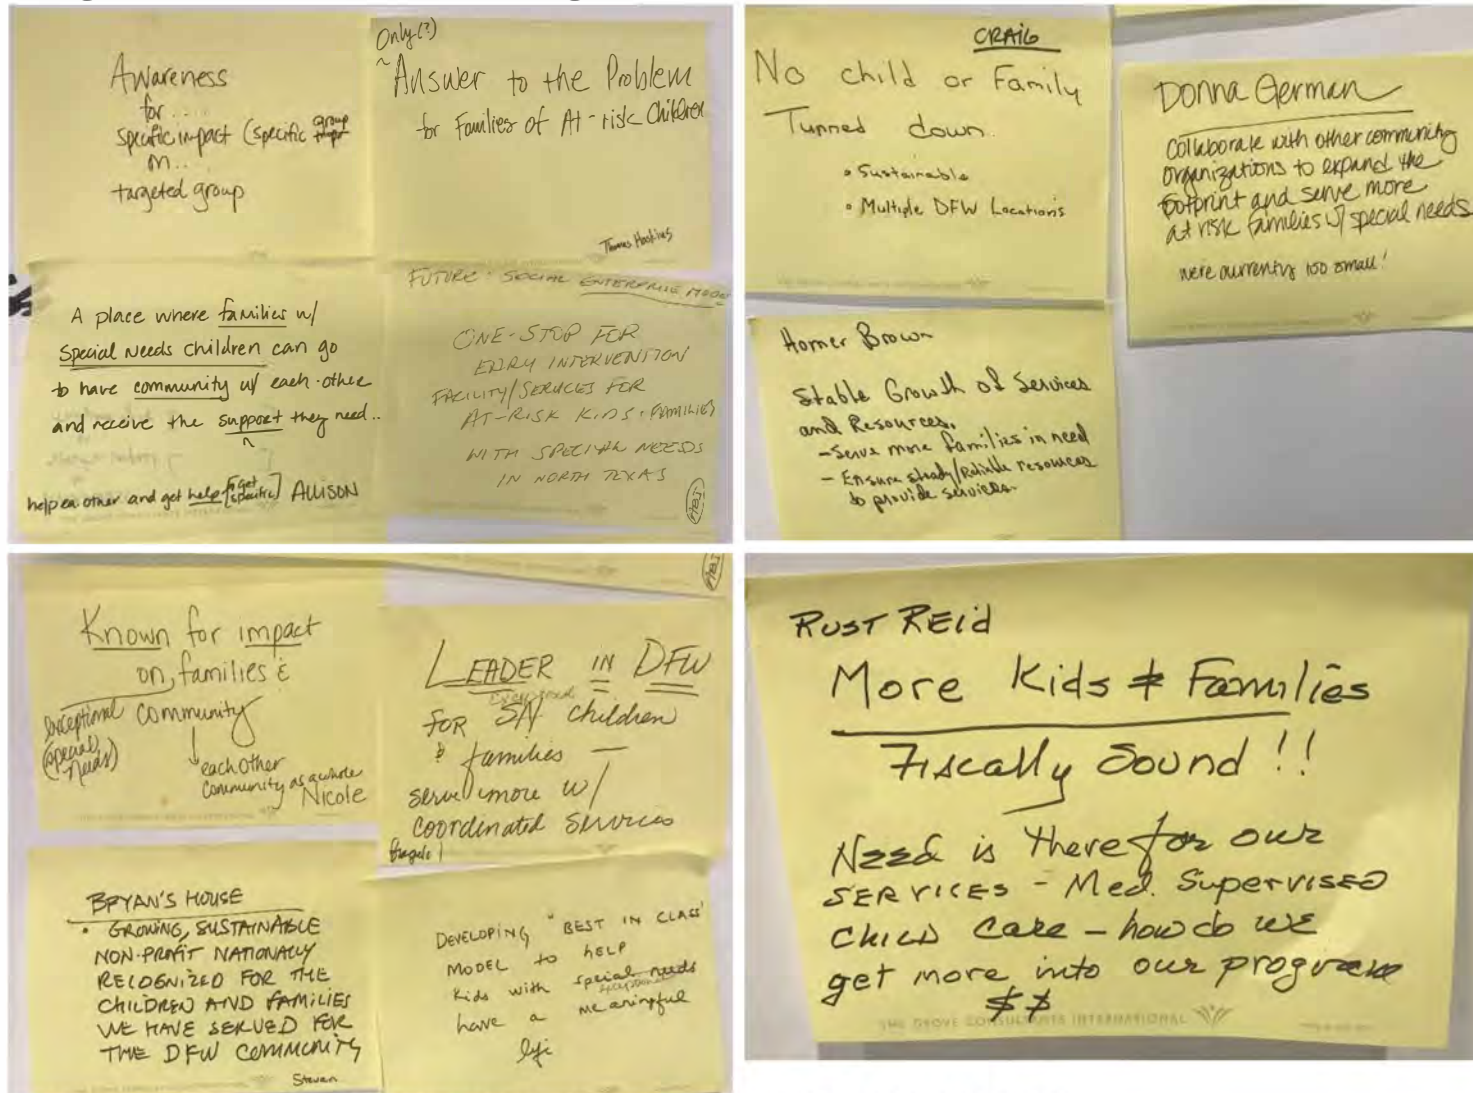 Awareness
for....
specific impact (specific group
on...
targeted group
Only(?)
^Answer to the Problem
for Families of At-risk Children
Thomas Hoskins
A place where families w/
special needs children can go
to have community w/ each other
and receive the support they need..
help ea. other and get help [to get specific] ALLISON
FUTURE - SOCIAL ENTERPRISE MODEL
ONE-STOP FOR
EARLY INTERVENTION
FACILITY/SERVICES FOR
AT-RISK KIDS & FAMILIES
WITH SPECIAL NEEDS
IN NORTH TEXAS
CRAIG
No child or Family
Turned down.
• Sustainable
• Multiple DFW Locations
Donna German
Collaborate with other community
organizations to expand the
footprint and serve more
at risk families w/ special needs
we're currently too small!
Homer Brown
Stable Growth of Services
and Resources.
- Serve more families in need
- Ensure steady/Reliable resources
to provide services.
Known for impact
on families &
exceptional community
(special needs)
each other
community as a whole
Nicole
LEADER IN DFW
for SN children
& families —
serve more w/
coordinated services
BRYAN'S HOUSE
• GROWING, SUSTAINABLE
NON-PROFIT NATIONALLY
RECOGNIZED FOR THE
CHILDREN AND FAMILIES
WE HAVE SERVED FOR
THE DFW COMMUNITY
Steven
DEVELOPING "BEST IN CLASS"
MODEL to HELP
Kids with special needs
have a meaningful
life
RUST REID
More Kids & Families
Fiscally Sound!!
Need is there for our
SERVICES - Med. Supervised
CHILD Care - how do we
get more into our program
$$
THE GROVE CONSULTANTS INTERNATIONAL